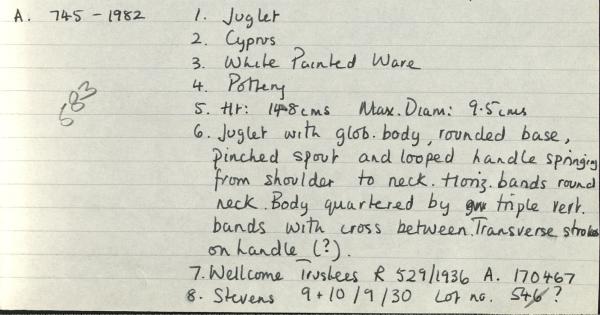 A. 745-1982 1. Juglet
2. Cyprus
3. White Painted Ware
4. Pottery
683
5. Ht: 14.8cms Max. Diam: 9.5cms
6. Juglet with glob. body, rounded base,
pinched spout and looped handle springing
from shoulder to neck. Horiz. bands round
neck. Body quartered by triple vert.
bands with cross between. Transverse strokes
on handle (?).
7. Wellcome Trustees R 529/1936 A. 170467
8. Stevens 9+10/9/30 Lot no. 546?